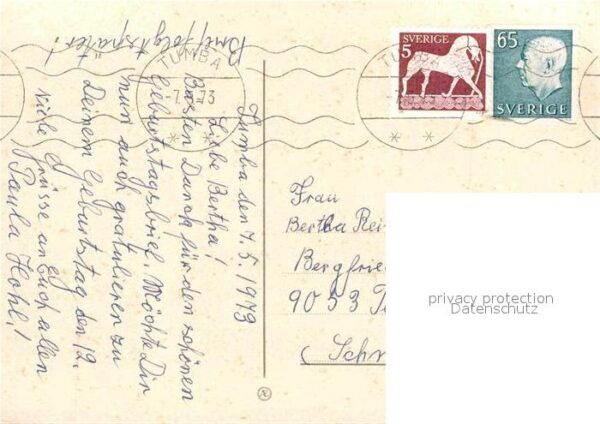 Brief folgt später!
Tumba den 7.5.1973
Liebe Bertha!
Besten Danck für den schönen
Geburtstagsbrief. Möchte Dir
nun auch gratulieren zu
Deinem Geburtstag den 12.
viele Grüsse an Euch allen
Paula Hohl!
TUMBA
-7.5.-73
SVERIGE
5
65
SVERIGE
TUMBA
Frau
Bertha Rei
Bergfrie
9053 T
(Schw
privacy protection
Datenschutz